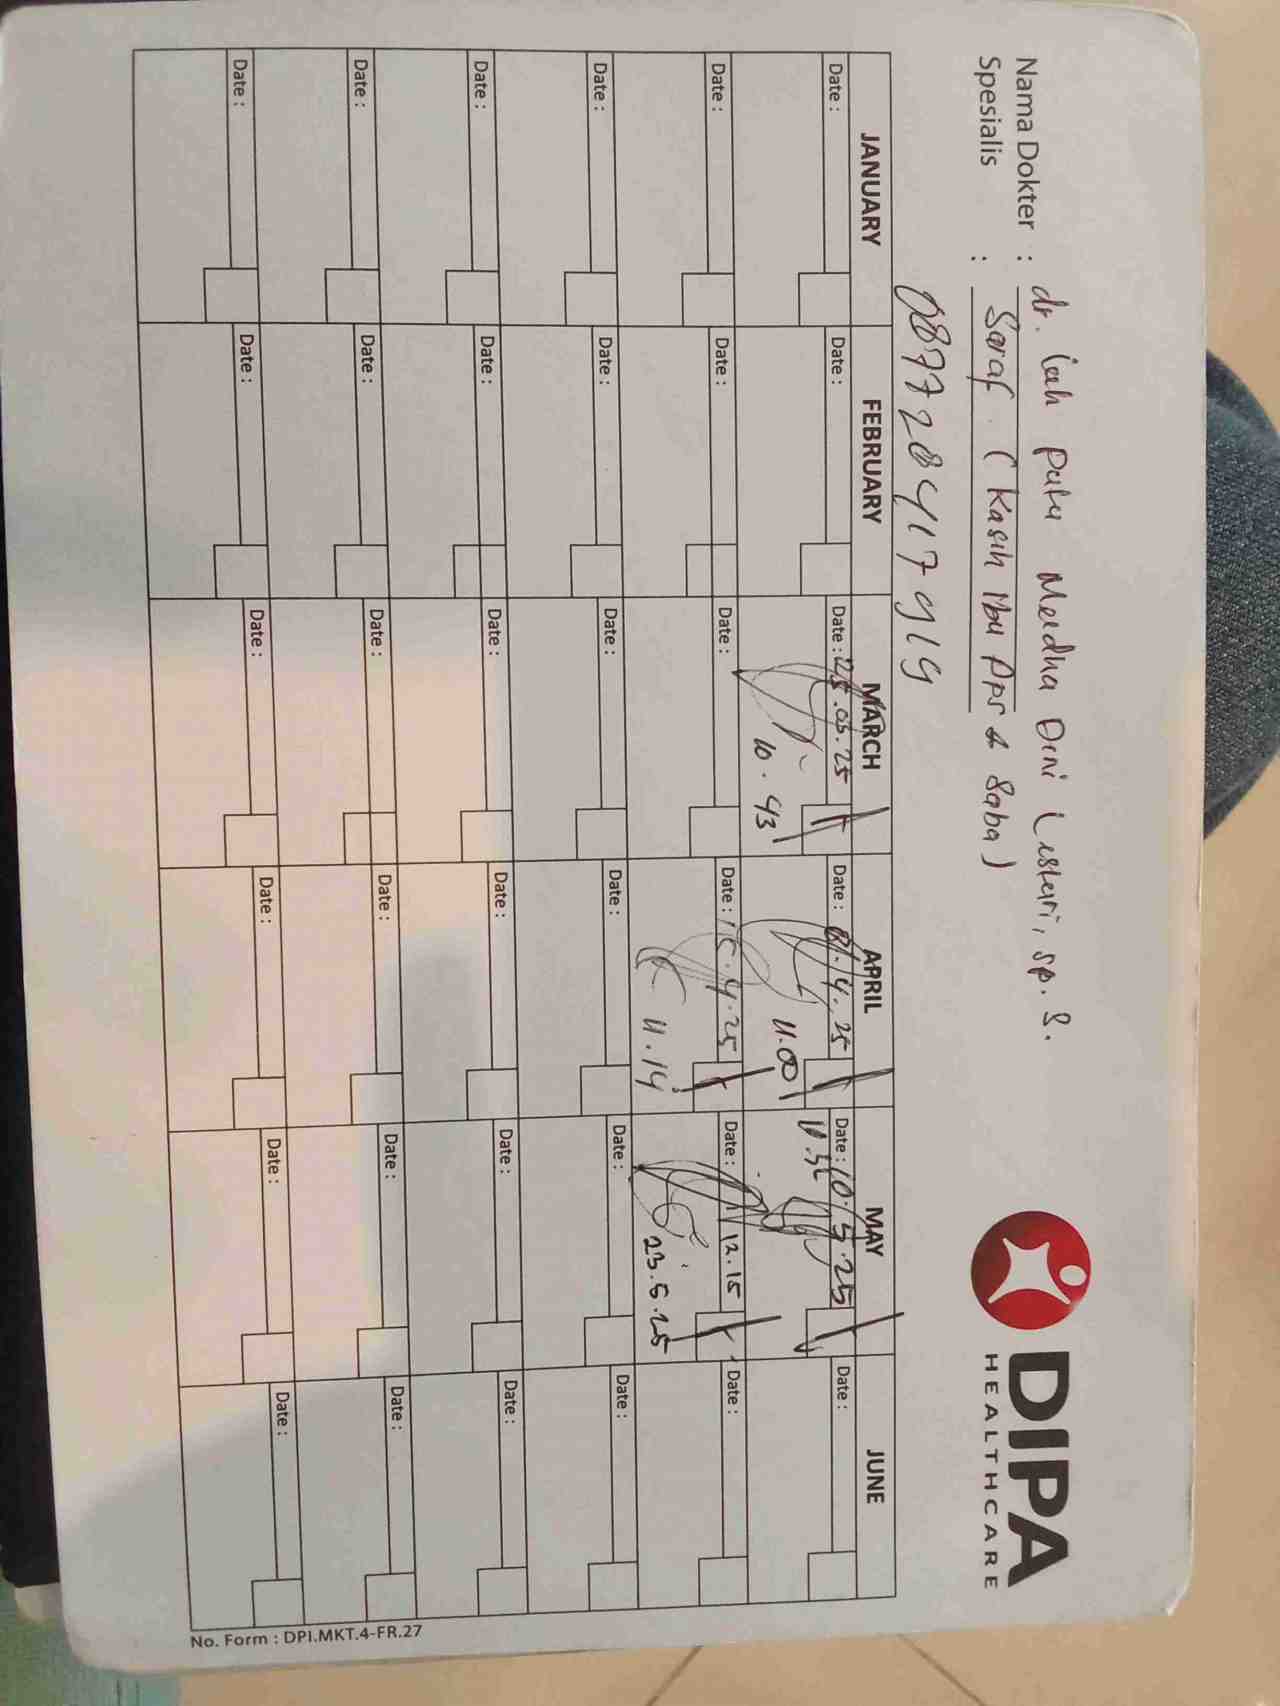 DIPA
HEALTHCARE
Nama Dokter : dr. Putu Meidha Dini Lestari, Sp. S.
Spesialis : Saraf. (Kasih Ibu Dps & Saba)
087728417919
JANUARY FEBRUARY MARCH APRIL MAY JUNE
Date : Date : Date : 25.03.25 Date : 8.4.25 Date : 10.5.25 Date :
10.43 11.00
Date : Date : Date : Date : 15.4.25 Date : 12.15 Date :
11.14 23.5.25
Date : Date : Date : Date : Date : Date :
Date : Date : Date : Date : Date : Date :
Date : Date : Date : Date : Date : Date :
Date : Date : Date : Date : Date : Date :
No. Form : DPI.MKT.4-FR.27